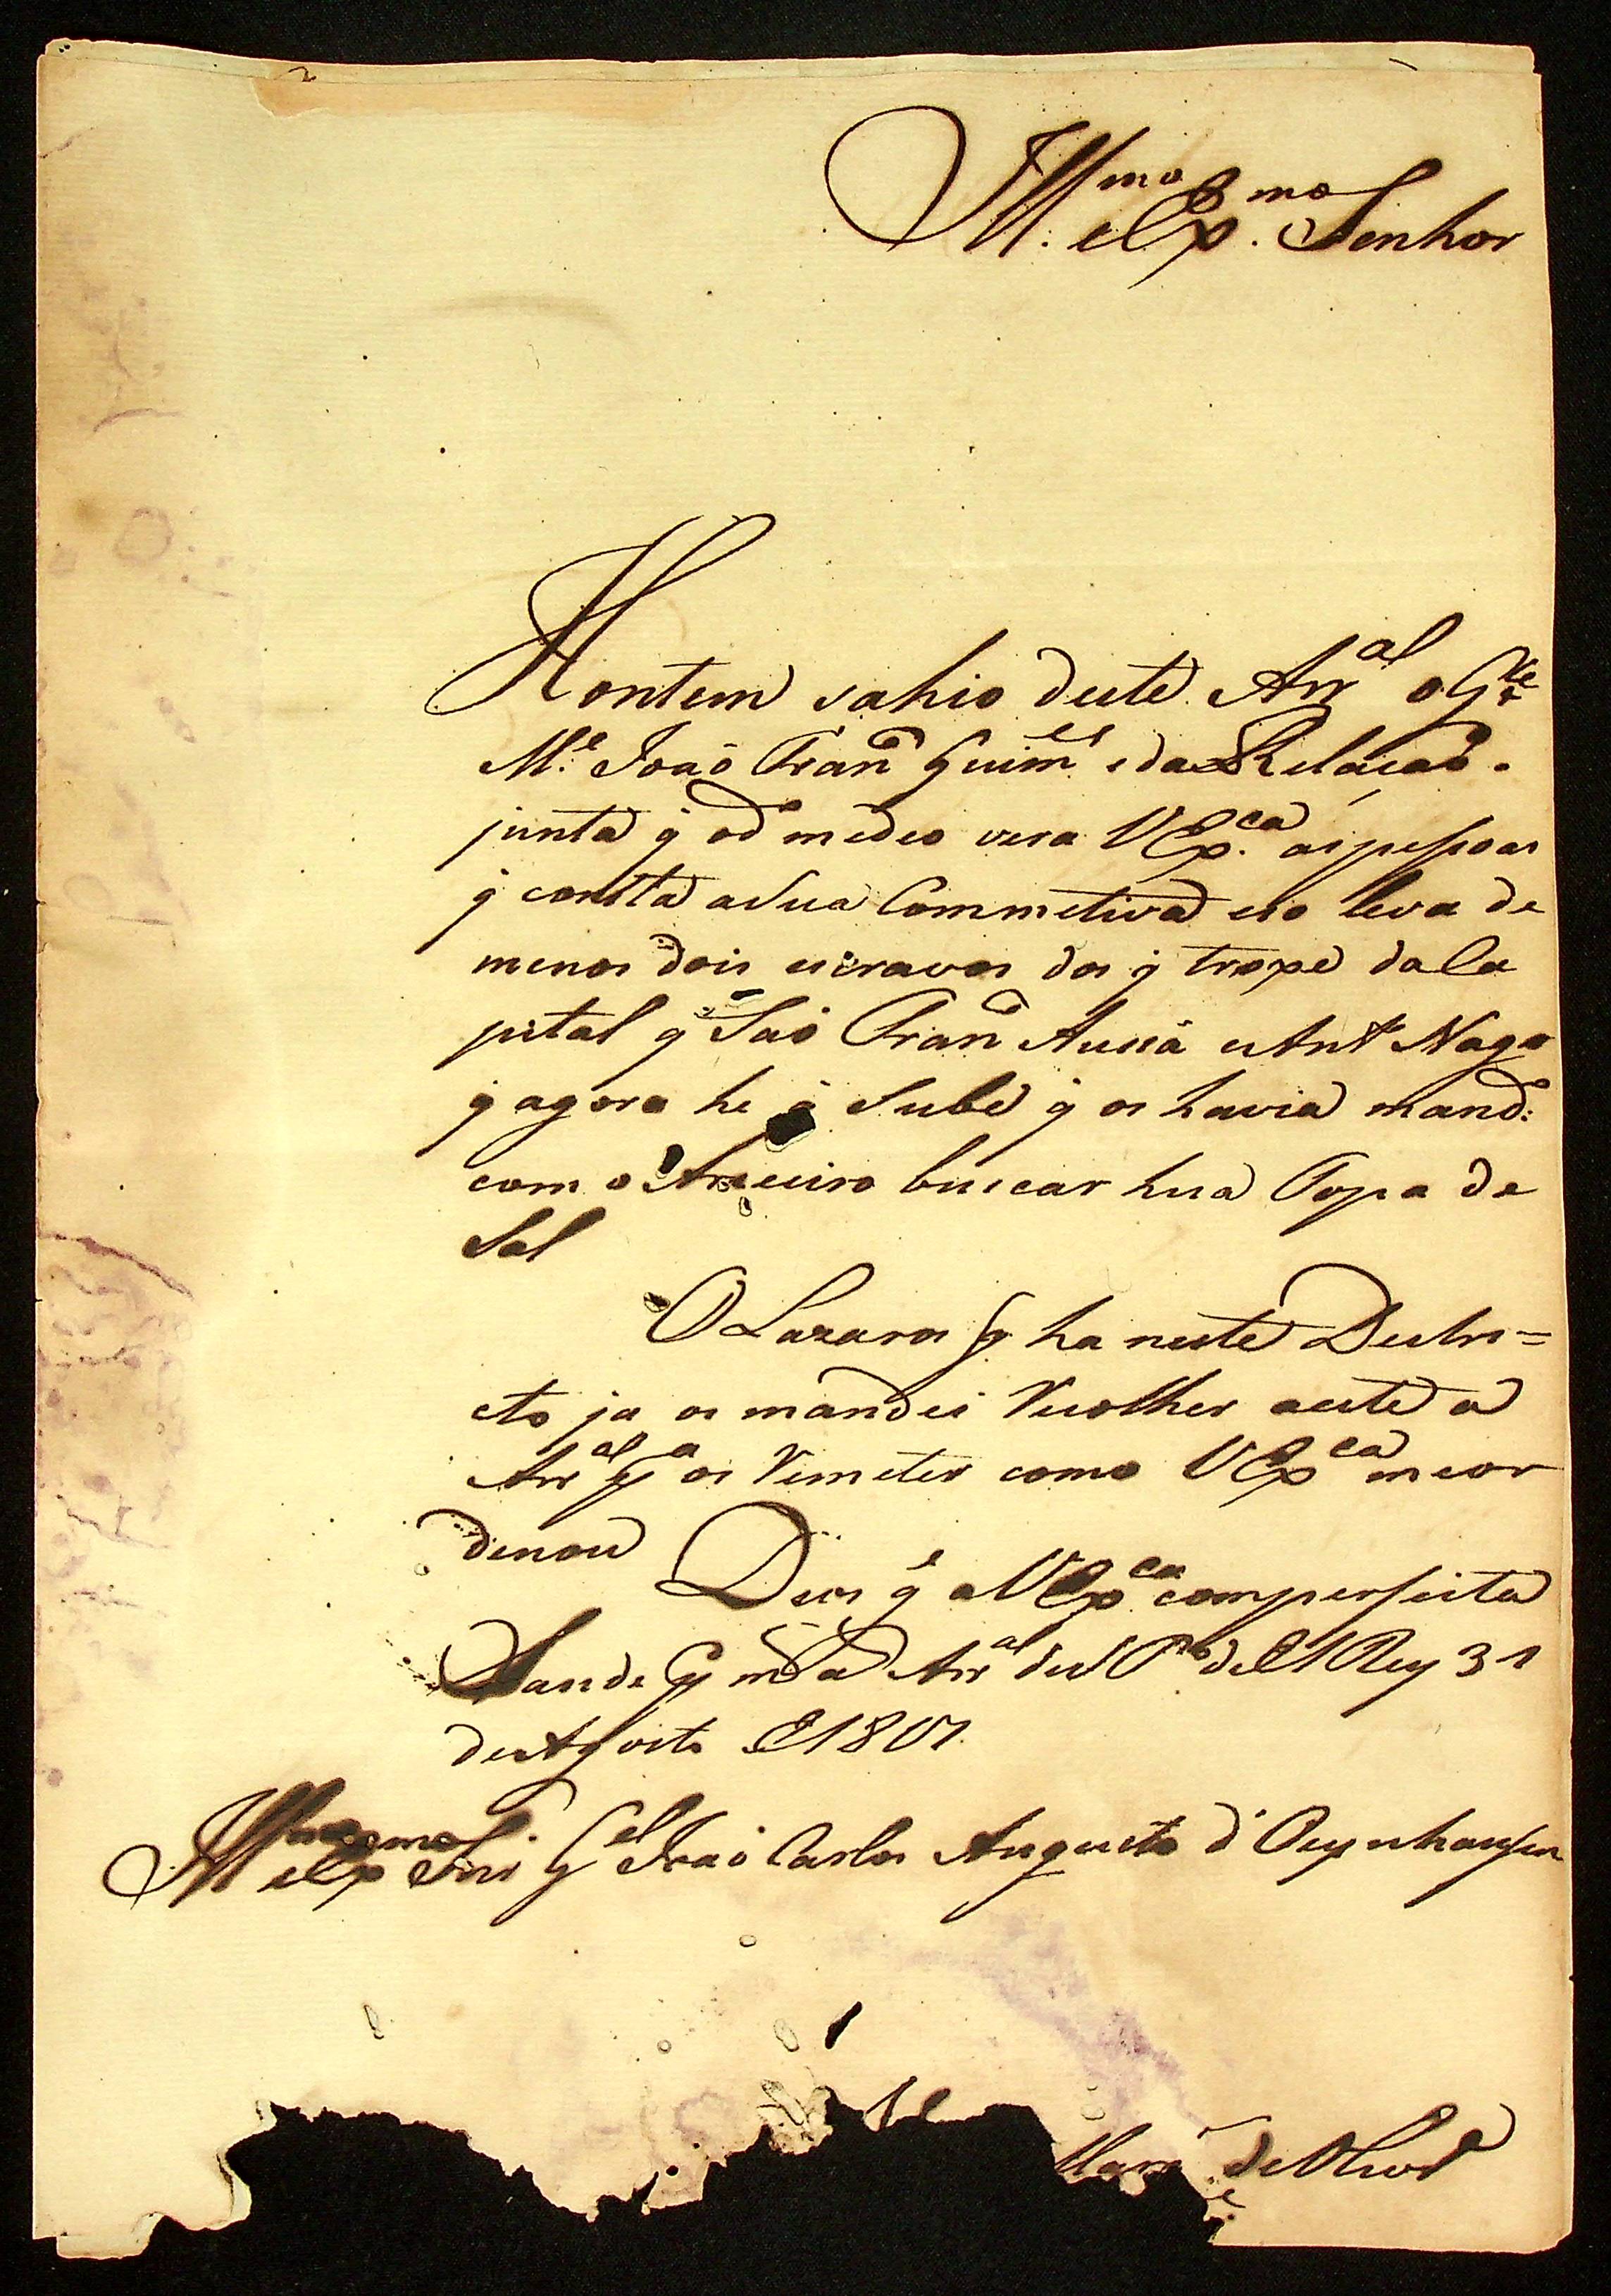 Ill.mo e Ex.mo Senhor
Hontem sahio deste Arr.al o G.
M.e João Fran.co Guim.es e da Relacaõ
junta q̃ o d.o me deo vera V Ex.ca as pessoas
q̃ consta a Sua Commetiva e so leva de
menos dois escravos dos q̃ troxe da Ca
pital q̃ Saõ Fran.co Aussá e Ant.o Nago
q̃ agora he q̃ Sube q̃ os havia mand.o
com o Arieiro buscar hua Topa de
Sal
O Lazaros q̃ ha neste Destri=
cto ja os mandei Recolher a este
Arr.al p.a os Remeter como V Ex.ca me or
denou
Deos g.e a V Ex.ca com perfeita
Saude p m.a Arr.al de S P.o del Rey 31
de Agosto E 1807
Ill.mo e Ex.mo Snr G.el Joaõ Carlos Augusto d'Oeynhausen
de Oliv.a